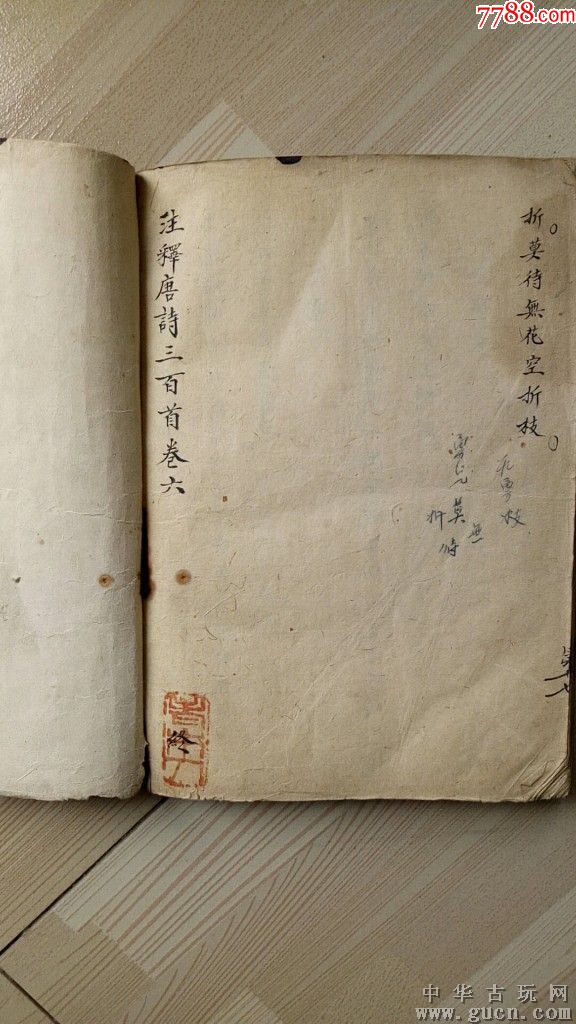 7788.com
折莫待無花空折枝
莫
折
無
枝
注釋唐詩三百首卷六
終
中华古玩网
www.gucn.com